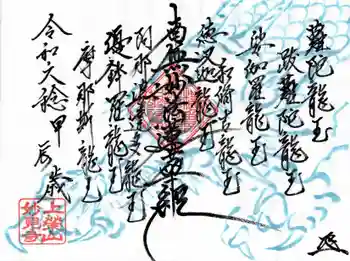 難陀龍王
跋難陀龍王
娑伽羅龍王
和脩吉龍王
徳叉迦龍王
南無妙法蓮華経
阿那婆達多龍王
摩那斯龍王
優鉢羅龍王
令和六稔甲辰歳
上螢山
妙見寺